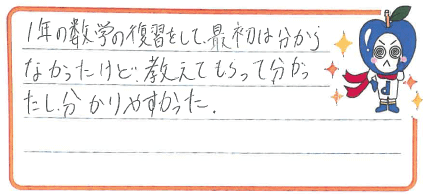 1年の数学の復習をして、最初は分から
なかったけど、教えてもらって分かっ
たし、分かりやすかった。
d